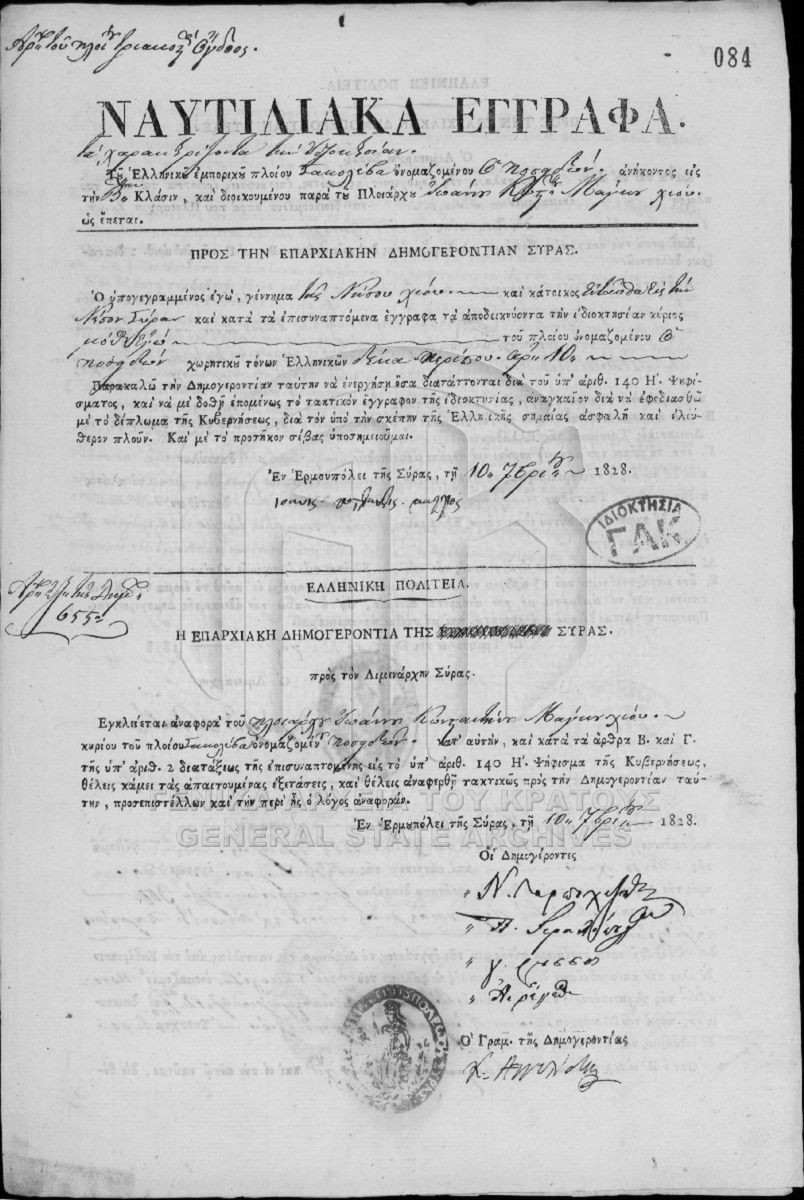 084
ΝΑΥΤΙΛΙΑΚΑ ΕΓΓΡΑΦΑ.
τὰ χαρακτηρίζοντα τὴν ἰδιοκτησίαν.
Τȣ͂ Ἑλληνικȣ͂ ἐμπορικȣ͂ πλοίου Σακολέβα ὀνομαζομένου Ὁ Ποσειδῶν. ἀνήκοντος εἰς
τὴν Βαν Κλάσιν, καὶ διοικουμένου παρὰ τȣ͂ Πλοιάρχȣ Ἰωάννη Χίου.
ὡς ἕπεται.
ΠΡΟΣ ΤΗΝ ΕΠΑΡΧΙΑΚΗΝ ΔΗΜΟΓΕΡΟΝΤΙΑΝ ΣΥΡΑΣ.
Ὁ ὑπογεγραμμένος ἐγὼ, γέννημα τῆς Νήσου Χίου καὶ κάτοικος ἐνταῦθα εἰς τὴν
Νῆσον Σύραν καὶ κατὰ τὰ ἐπισυναπτόμενα ἔγγραφα τὰ ἀποδεικνύοντα τὴν ἰδιοκτησίαν κύριος
μόνος ἐγὼ τοῦ πλοίου ὀνομαζομένου Ὁ
Ποσειδῶν χωρητικȣ͂ τόνων Ἑλληνικῶν δέκα περίπου ἀρ: 10
Παρακαλῶ τὴν Δημογεροντίαν ταύτην νὰ ἐνεργήσῃ ὅσα διατάττονται διὰ τοῦ ὑπ' ἀριθ. 140 Η'. Ψηφί-
σματος, καὶ νὰ μὲ δοθῇ ἑπομένως τὸ τακτικὸν ἔγγραφον τῆς ἰδιοκτυσίας, ἀναγκαῖον διὰ νὰ ἐφοδιασθῶ
μὲ τὸ δίπλωμα τῆς Κυβερνήσεως, διὰ τὸν ὑπὸ τὴν σκέπην τῆς Ἑλληνικῆς σημαίας ἀσφαλῆ καὶ ἐλεύ-
θερον πλοῦν. Καὶ μὲ τὸ προσῆκον σέβας ὑποσημειοῦμαι.
Ἐν Ἑρμουπόλει τῆς Σύρας, τῇ 10 7βρίου 1828.
ΙΔΙΟΚΤΗΣΙΑ
ΓΑΚ
ΕΛΛΗΝΙΚΗ ΠΟΛΙΤΕΙΑ.
655
Η ΕΠΑΡΧΙΑΚΗ ΔΗΜΟΓΕΡΟΝΤΙΑ ΤΗΣ ΣΥΡΑΣ.
πρὸς τὸν Λιμενάρχην Σύρας.
Ἐγκλείεται ἀναφορὰ τοῦ πλοιάρχου Ἰωάννη Κωνσταντίνου Χίου
κυρίου τοῦ πλοίου Σακολέβα ὀνομαζομένου Ποσειδῶν. κατ' αὐτὴν, καὶ κατὰ τὰ ἄρθρα Β. καὶ Γ.
τῆς ὑπ' ἀριθ. 2 διατάξεως τῆς ἐπισυναπτομένης εἰς τὸ ὑπ' ἀριθ. 140 Η'. Ψήφισμα τῆς Κυβερνήσεως,
θέλεις κάμει τὰς ἀπαιτουμένας ἐξετάσεις, καὶ θέλεις ἀναφερθῆ τακτικῶς πρὸς τὴν Δημογεροντίαν ταύ-
την, προσεπιστέλλων καὶ τὴν περὶ ἧς ὁ λόγος ἀναφοράν.
ΓΕΝΙΚΑ ΑΡΧΕΙΑ ΤΟΥ ΚΡΑΤΟΥΣ
Ἐν Ἑρμȣπόλει τῆς Σύρας, τῇ 10 7βρίου 1828.
GENERAL STATE ARCHIVES
Οἱ Δημογέροντες
Ὁ Γραμ. τῆς Δημογεροντίας